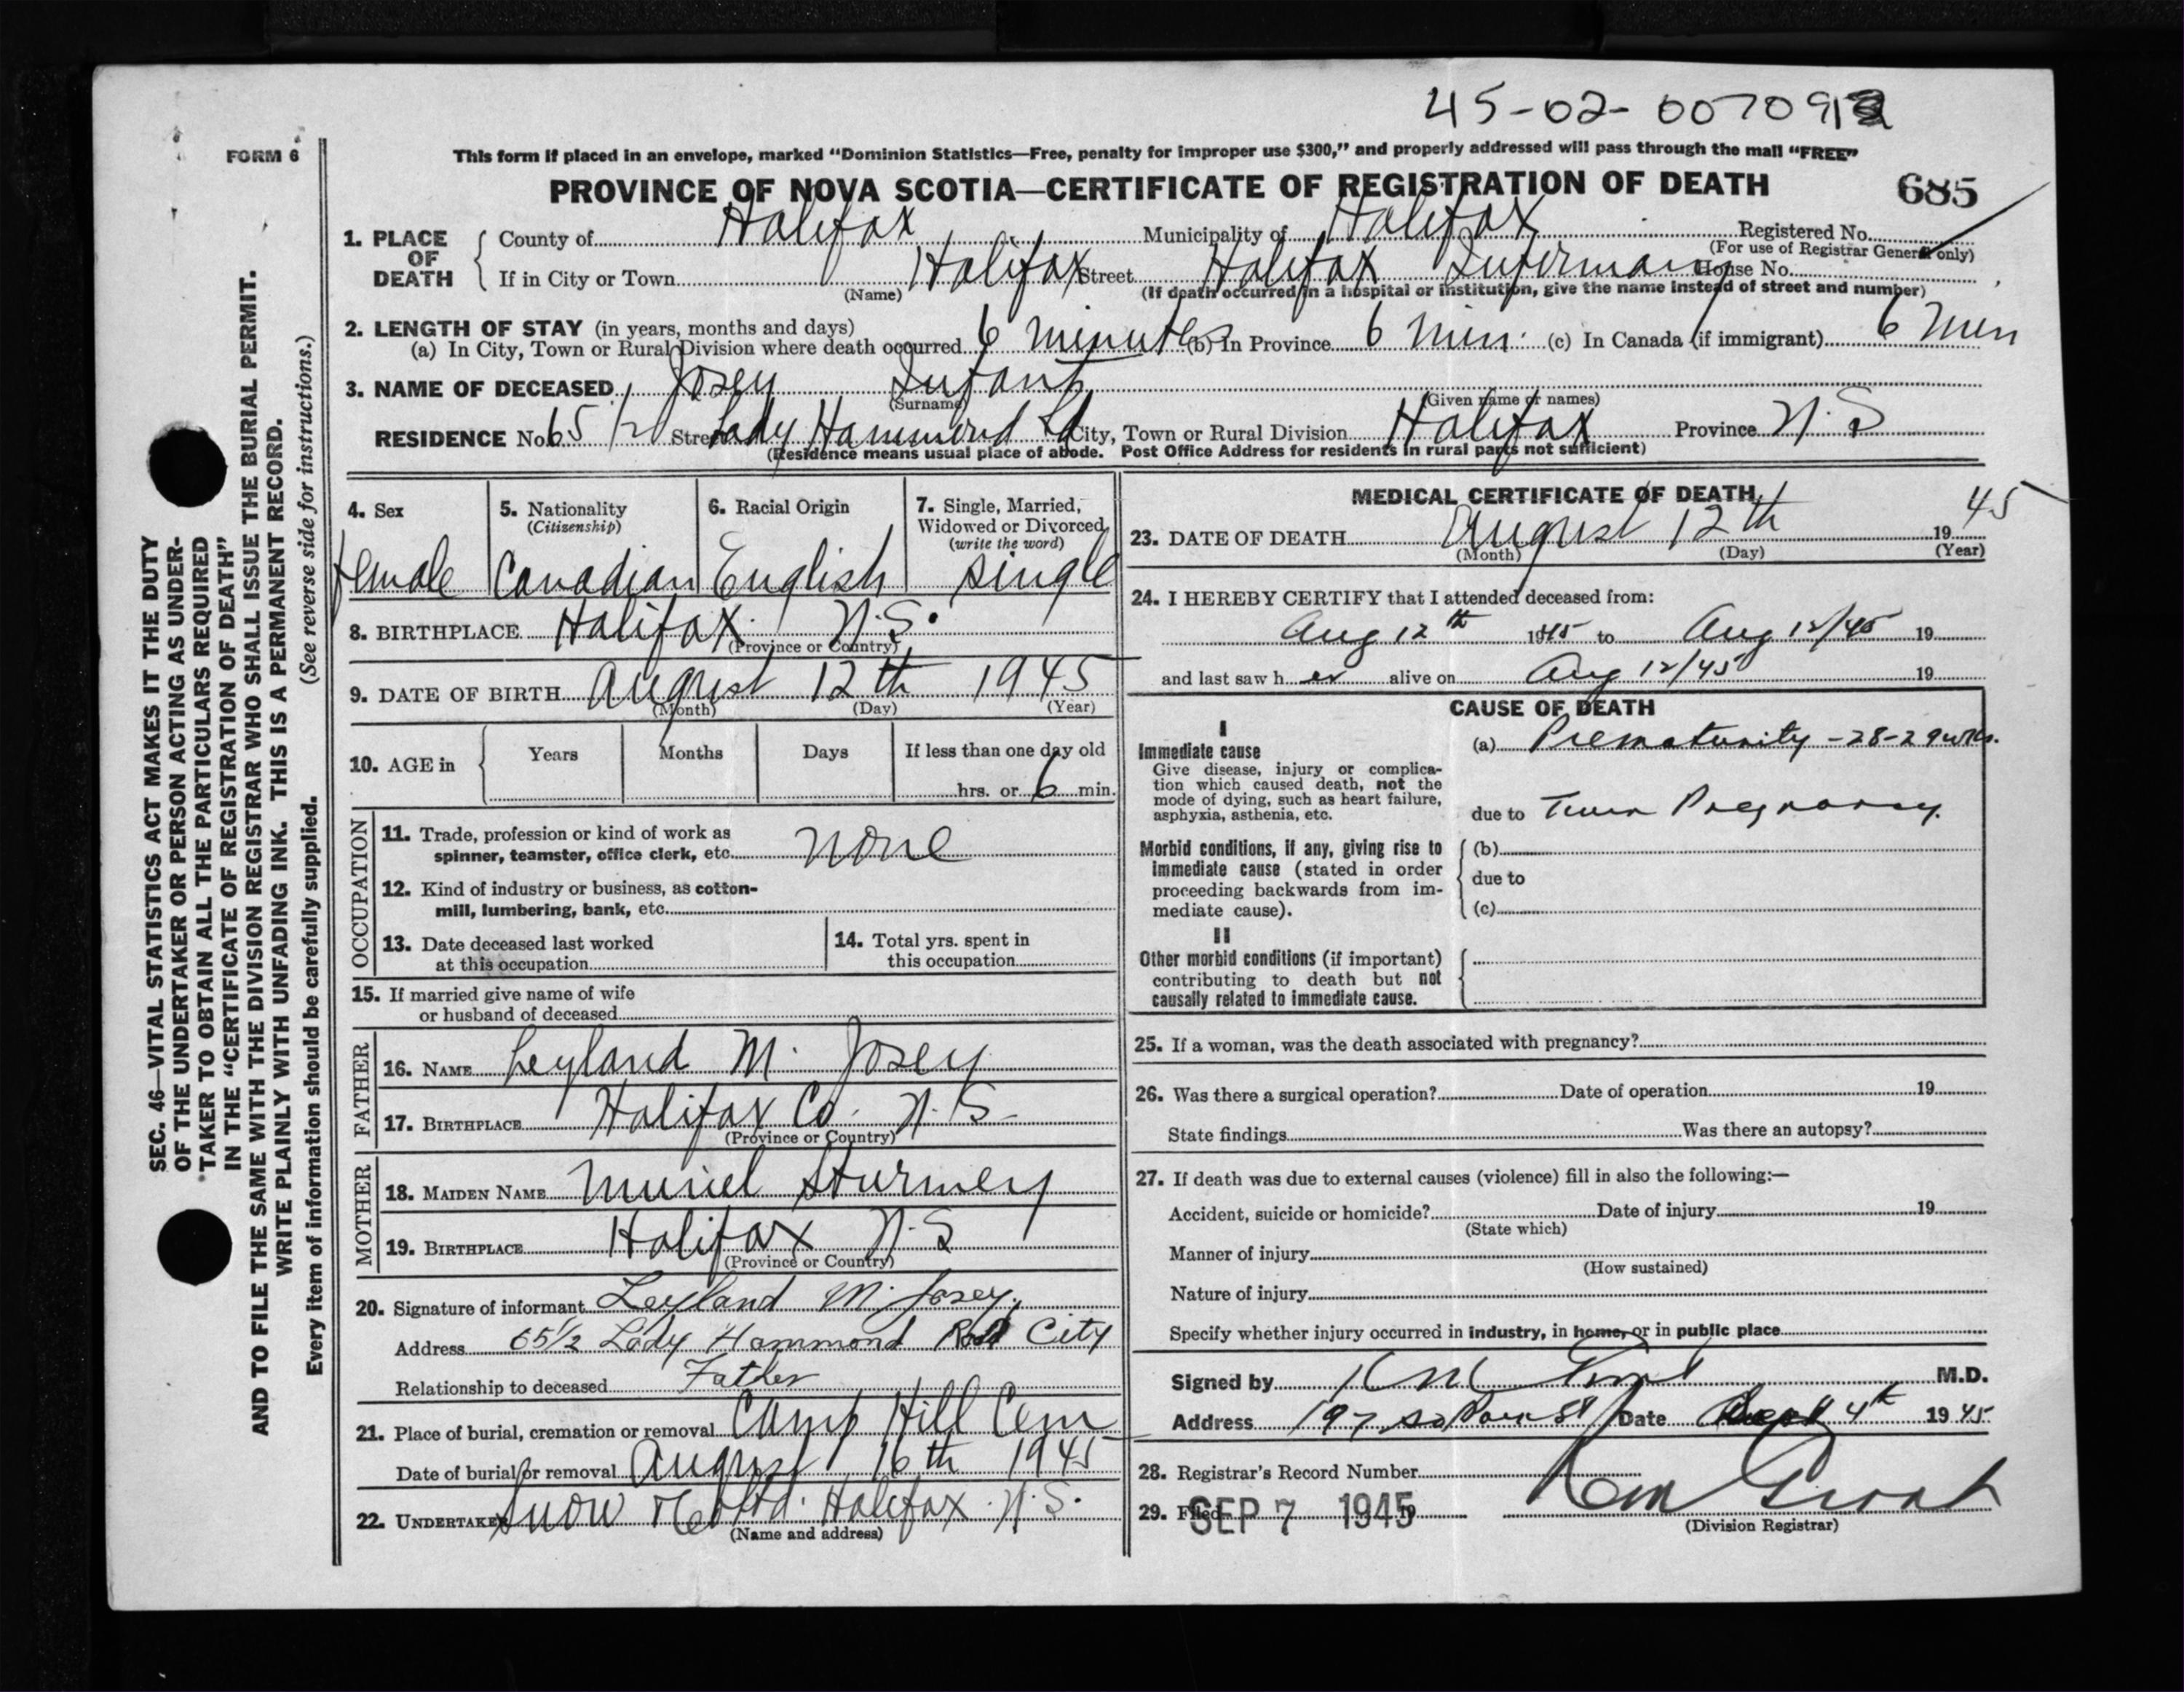 45-02-007091
FORM 6
This form if placed in an envelope, marked "Dominion Statistics—Free, penalty for improper use $300," and properly addressed will pass through the mail "FREE"
PROVINCE OF NOVA SCOTIA—CERTIFICATE OF REGISTRATION OF DEATH
685
1. PLACE OF DEATH { County of Halifax Municipality of Halifax Registered No.
(For use of Registrar General only)
If in City or Town Halifax Street Halifax Infirmary House No.
(Name) (If death occurred in a hospital or institution, give the name instead of street and number)
2. LENGTH OF STAY (in years, months and days)
(a) In City, Town or Rural Division where death occurred 6 minutes (b) In Province 6 min. (c) In Canada (if immigrant) 6 Min
3. NAME OF DECEASED Josey Infant
(Surname) (Given name or names)
RESIDENCE No. 65 1/2 Street Lady Hammond Rd City, Town or Rural Division Halifax Province N.S
(Residence means usual place of abode. Post Office Address for residents in rural parts not sufficient)
4. Sex
Female
5. Nationality
(Citizenship)
Canadian
6. Racial Origin
English
7. Single, Married,
Widowed or Divorced
(write the word)
single
8. BIRTHPLACE Halifax N.S.
(Province or Country)
9. DATE OF BIRTH August 12th 1945
(Month) (Day) (Year)
10. AGE in { Years Months Days If less than one day old
hrs. or 6 min.
OCCUPATION
11. Trade, profession or kind of work as
spinner, teamster, office clerk, etc. none
12. Kind of industry or business, as cotton-
mill, lumbering, bank, etc.
13. Date deceased last worked
at this occupation
14. Total yrs. spent in
this occupation
15. If married give name of wife
or husband of deceased
FATHER
16. NAME Leyland M. Josey
17. BIRTHPLACE Halifax Co. N.S.
(Province or Country)
MOTHER
18. MAIDEN NAME Muriel Sturmey
19. BIRTHPLACE Halifax N.S
(Province or Country)
20. Signature of informant Leyland M. Josey
Address 65 1/2 Lady Hammond Road City
Relationship to deceased Father
21. Place of burial, cremation or removal Camp Hill Cem
Date of burial or removal August 16th 1945
22. UNDERTAKER Snow & Co Ltd. Halifax N.S.
(Name and address)
MEDICAL CERTIFICATE OF DEATH
23. DATE OF DEATH August 12th 1945
(Month) (Day) (Year)
24. I HEREBY CERTIFY that I attended deceased from:
Aug 12th 1945 to Aug 12/45 19
and last saw her alive on Aug 12/45 19
CAUSE OF DEATH
I
Immediate cause
Give disease, injury or complica-
tion which caused death, not the
mode of dying, such as heart failure,
asphyxia, asthenia, etc.
(a) Prematurity - 28-29 wks.
due to Twin Pregnancy.
Morbid conditions, if any, giving rise to
immediate cause (stated in order
proceeding backwards from im-
mediate cause).
(b)
due to
(c)
II
Other morbid conditions (if important)
contributing to death but not
causally related to immediate cause.
25. If a woman, was the death associated with pregnancy?
26. Was there a surgical operation? Date of operation 19
State findings Was there an autopsy?
27. If death was due to external causes (violence) fill in also the following:—
Accident, suicide or homicide? Date of injury 19
(State which)
Manner of injury
(How sustained)
Nature of injury
Specify whether injury occurred in industry, in home, or in public place
Signed by M.D.
Address 197 So Park St Date Sept 4th 1945
28. Registrar's Record Number
29. Filed SEP 7 1945 19
(Division Registrar)
SEC. 46—VITAL STATISTICS ACT MAKES IT THE DUTY
OF THE UNDERTAKER OR PERSON ACTING AS UNDER-
TAKER TO OBTAIN ALL THE PARTICULARS REQUIRED
IN THE "CERTIFICATE OF REGISTRATION OF DEATH"
AND TO FILE THE SAME WITH THE DIVISION REGISTRAR WHO SHALL ISSUE THE BURIAL PERMIT.
WRITE PLAINLY WITH UNFADING INK. THIS IS A PERMANENT RECORD.
Every item of information should be carefully supplied. (See reverse side for instructions.)